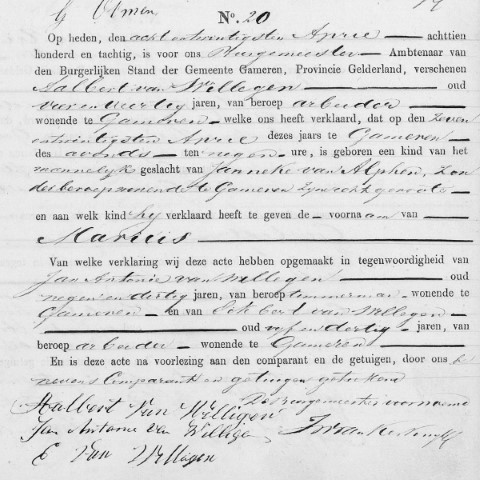 G. Olmen
No. 20
Op heden, den acht en twintigsten April achttien
honderd en tachtig, is voor ons Burgemeester Ambtenaar van
den Burgerlijken Stand der Gemeente Gameren, Provincie Gelderland, verschenen
Aalbert van Willegen oud
vier en veertig jaren, van beroep arbeider
wonende te Gameren welke ons heeft verklaard, dat op den zeven
en twintigsten April dezes jaars te Gameren
des avonds ten negen ure, is geboren een kind van het
mannelijk geslacht van Janneke van Alphen, zon
der beroep wonende te Gameren zijne echtgenoote
en aan welk kind hij verklaard heeft te geven de voornaam van
Marinus
Van welke verklaring wij deze acte hebben opgemaakt in tegenwoordigheid van
Jan Antonie van Willegen oud
negen en dertig jaren, van beroep timmerman wonende te
Gameren en van Eckbert van Willegen
oud vijf en dertig jaren, van
beroep arbeider wonende te Gameren
En is deze acte na voorlezing aan den comparant en de getuigen, door ons be
nevens Comparant en getuigen geteekend
Aalbert Van Willigen De Burgemeester voornoemd
Jan Antonie van Willigen
E Van Willegen